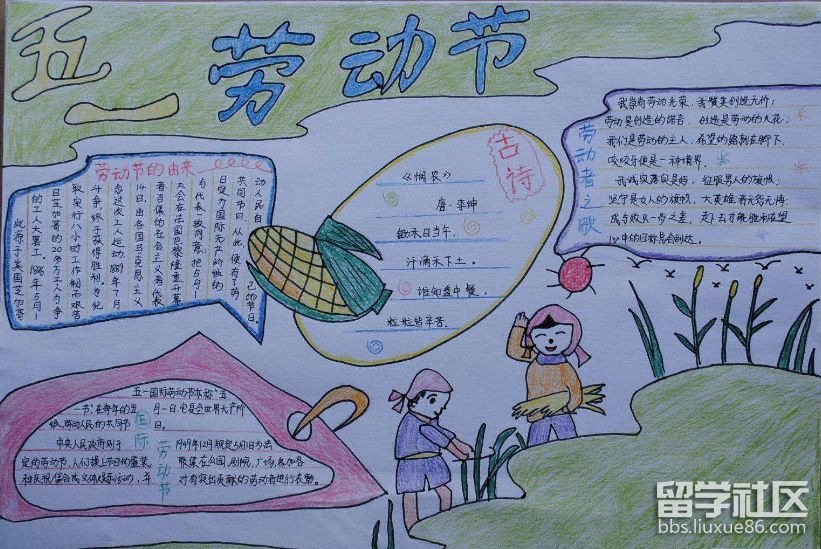 五一劳动节
劳动节的由来
此源于美国芝加哥
的工人大罢工。1886年5月1
日芝加哥的20多万工人为争
取实行八小时工作制而艰苦
斗争,终于获得胜利。为纪
念这次工人运动,1889年7月
14日,由各国马克思主义
者召集的社会主义者代表
大会在法国巴黎隆重开幕
与代表一致同意,把5月1
日定为国际无产阶级的
共同节日。从此,便有了劳
动人民自
己的节日。
古诗
《悯农》
唐·李绅
锄禾日当午,
汗滴禾下土。
谁知盘中餐,
粒粒皆辛苦。
劳动者之歌
我崇尚劳动光荣,我赞美创造无价;
劳动是创造的源
,创造是劳动的火花;
我们是劳动的主人,希望的路就在脚下,
是一种境界,
坚守是女人的
,大英雄者无
成与败只一步之差,走下去才能胜利在望
国际劳动节
五一国际劳动节亦称“五
一节”,在每年的五月一日,它是全世界无产阶
级、劳动人民的共同节日。
中央人民政府
于1949年12月规定5月1日为法
定劳动节,人们换上节日的盛装,
聚集在公园、剧院、广场,参加各
种庆祝集会或文体娱乐活动,并
对有突出贡献的劳动者进行表彰。
留学社区
bbs.liuxue86.com